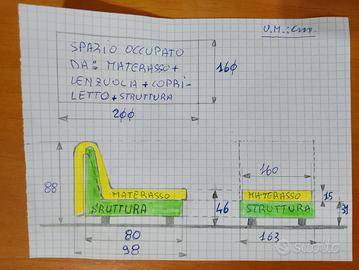 U.M.: cm
SPAZIO OCCUPATO
DA: MATERASSO +
LENZUOLA + COPRI-
LETTO + STRUTTURA
160
200
88
MATERASSO
STRUTTURA
46
80
98
160
MATERASSO
STRUTTURA
15
31
163
subito